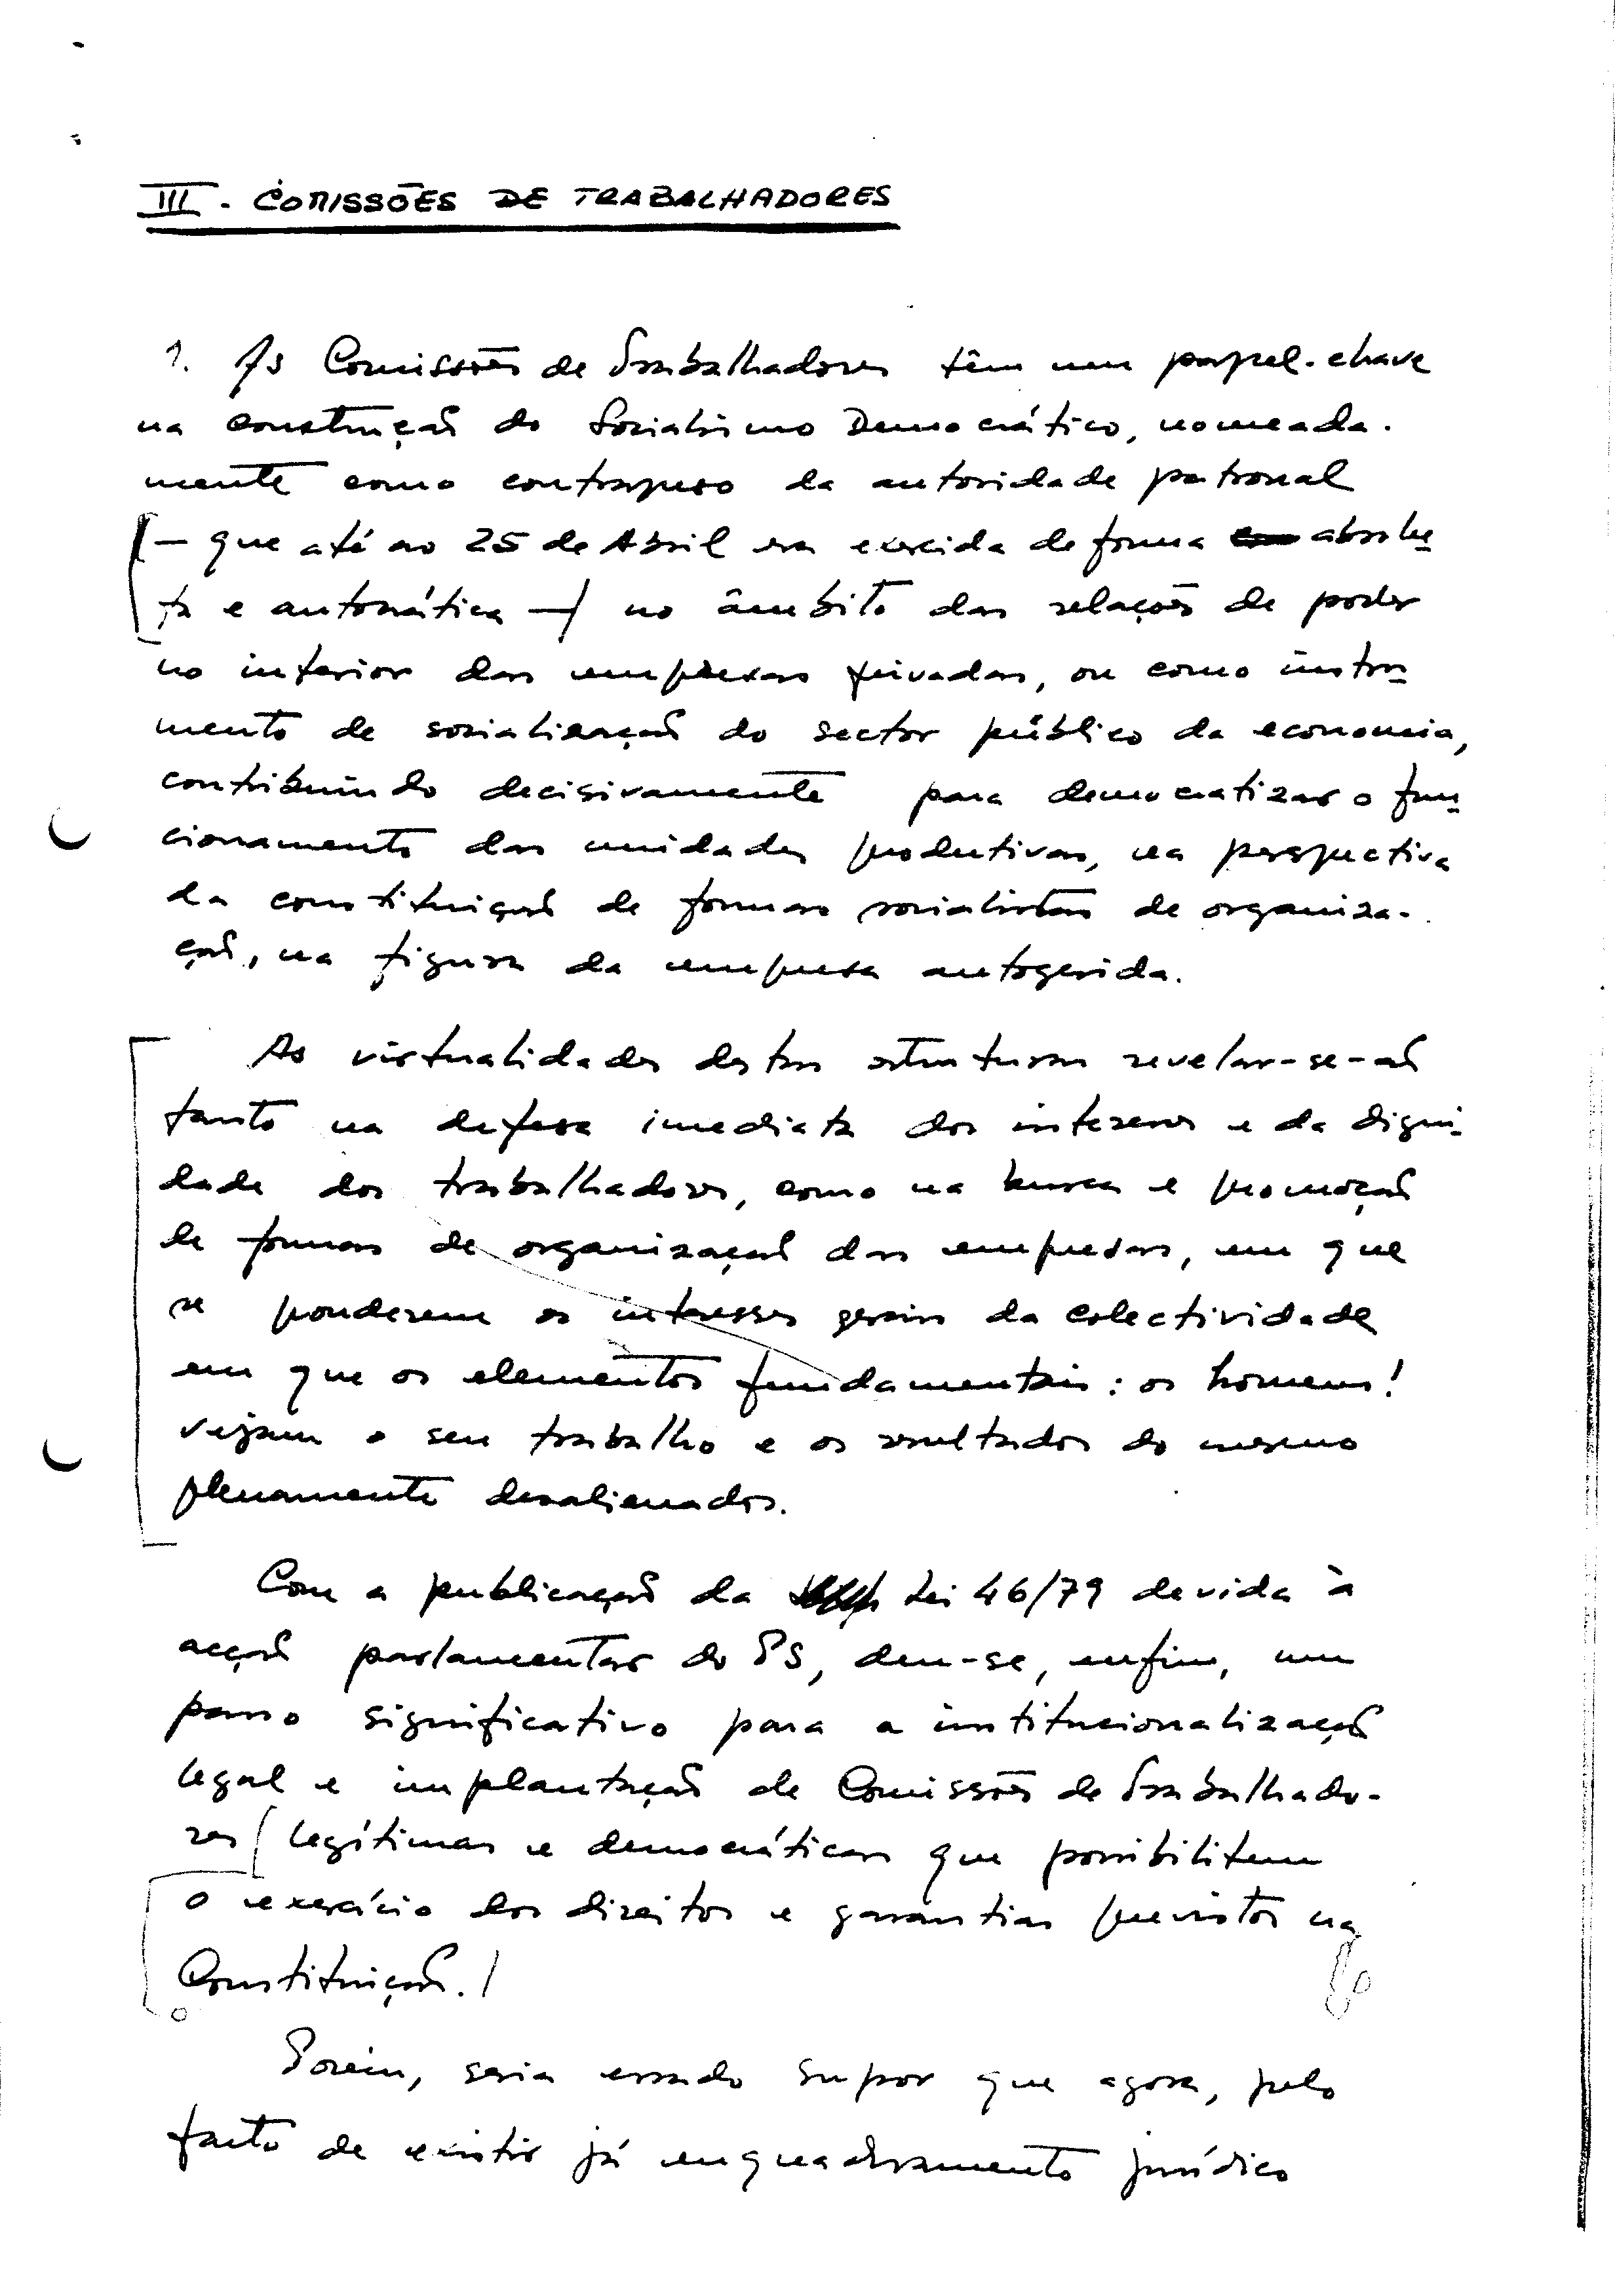 III. COMISSÕES DE TRABALHADORES
1. As Comissões de Trabalhadores têm um papel-chave
na construção do Socialismo Democrático, nomeada-
mente como contrapeso da autoridade patronal
[— que até ao 25 de Abril era exercida de forma absolu-
ta e automática —] no âmbito das relações de poder
no interior das empresas privadas, ou como instru-
mento de socialização do sector público da economia,
contribuindo decisivamente para democratizar o fun-
cionamento das unidades produtivas, na perspectiva
da constituição de formas socialistas de organiza-
ção, na figura da empresa autogerida.
As virtualidades destas estruturas revelar-se-ão
tanto na defesa imediata dos interesses e da digni-
dade dos trabalhadores, como na busca e promoção
de formas de organização das empresas, em que
se ponderem os interesses gerais da colectividade
em que os elementos fundamentais: os homens!
vejam o seu trabalho e os resultados do mesmo
plenamente desalienados.
Com a publicação da Lei 46/79 devida à
acção parlamentar do PS, deu-se, enfim, um
passo significativo para a institucionalização
legal e implantação de Comissões de Trabalhado-
res [legítimas e democráticas que possibilitem
o exercício dos direitos e garantias previstos na
Constituição.]
Porém, seria errado supor que agora, pelo
facto de existir já enquadramento jurídico